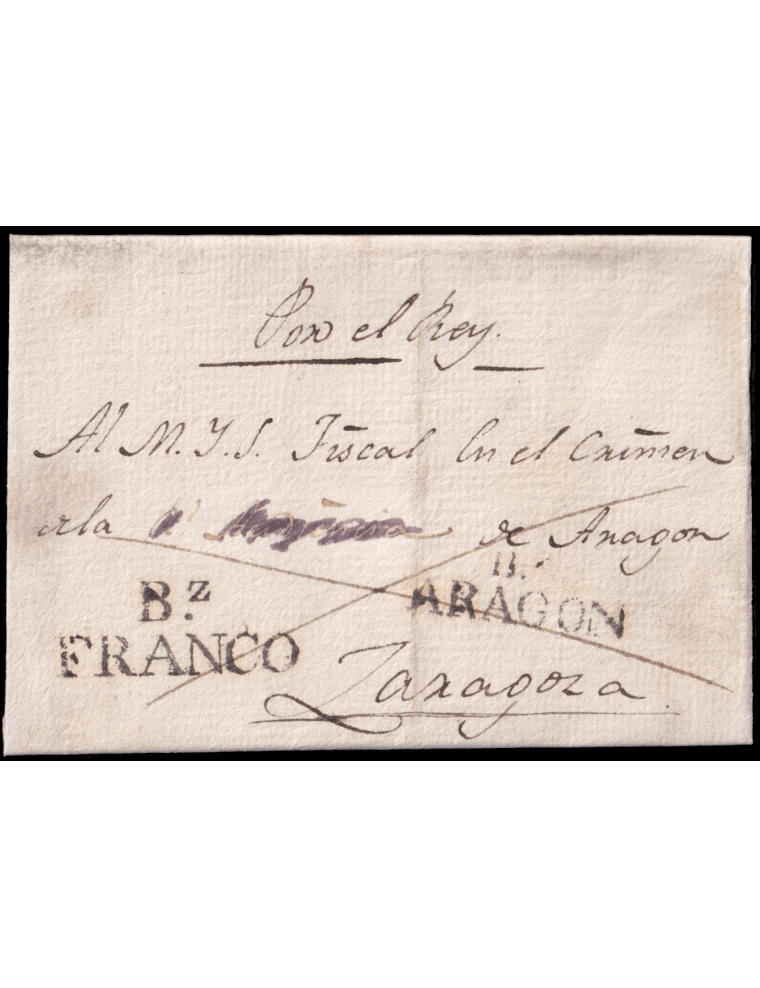 Por el Rey.
Al M. Y. S. Fiscal en el Crimen
de la de Aragon
B.z
FRANCO
B.
ARAGON
Zaragoza